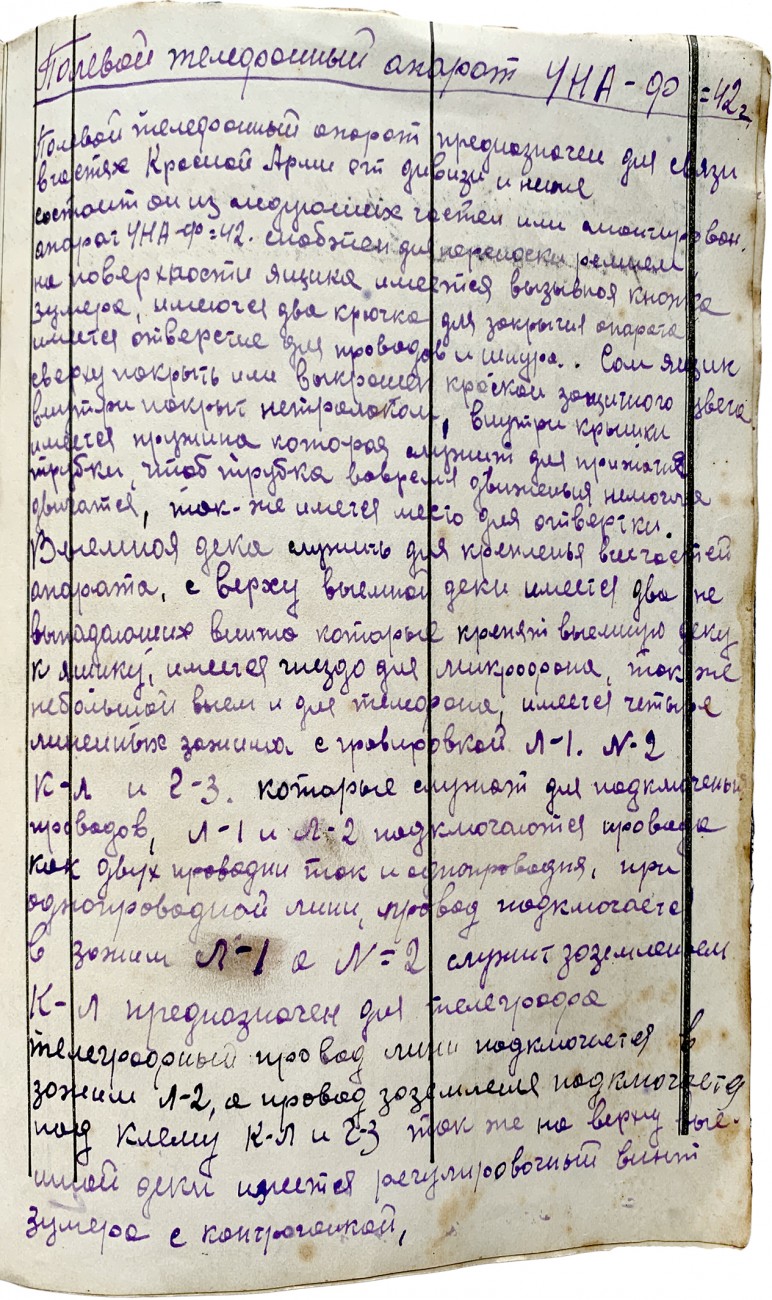 Полевой телефонный апарат УНА-Ф=42г.
Полевой телефонный апарат предназначен для связи
в частях Красной Армии от дивизи и ниже
состоит он из следующих частей или смонтирован.
апарат УНА-Ф=42. снабжен для переноски ремнем,
на поверхности ящика имеется вызывная кнопка
зумера, имеются два крючка для закрытия апарата
имеется отверстие для проводов и шнура.. Сам ящик
сверху покрыть или выкрашен краской защитного цвета
внутри покрыт нетролаком, внутри крышки
имеется пружина которая служит для прижатия
трубки, чтоб трубка вовремя движенья немогла
двигатся, так-же имется место для отвертки.
Выемная дека служить для крепленья всех частей
апарата, с верху выемной деки имеется два не
выпадающих винта которые крепят выемную деку
к ящику, имеется гнездо для микрофона, так же
небольшой выем и для телефона, имеется четыре
линейных зажима с гравировкой Л-1. N-2
К-Л и 2-3. которые служат для подключенья
проводов, Л-1 и Л-2 подключаются провода
как двух проводни так и однопроводня, при
однопроводной лини, провод подключается
в зажим Л-1 а N=2 служит заземлением
К-Л предназначен для телеграфа
телеграфный провод лини подключается в
зажим Л-2, а провод заземления подключается
под клему К-Л и 2-3 так же на верху вые-
мной деки имеется регулировочный винт
зумера с контрогайкой,